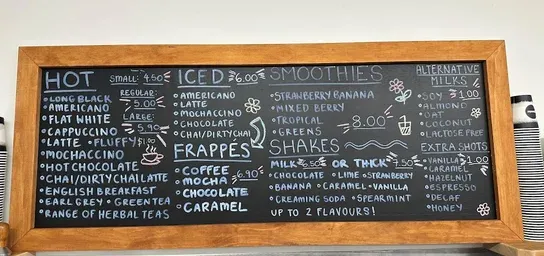 HOT
SMALL: 4.50
REGULAR:
5.00
LARGE:
5.90
• LONG BLACK
• AMERICANO
• FLAT WHITE
• CAPPUCCINO
• LATTE • FLUFFY $1.00
• MOCHACCINO
• HOT CHOCOLATE
• CHAI/DIRTY CHAI LATTE
• ENGLISH BREAKFAST
• EARL GREY • GREEN TEA
• RANGE OF HERBAL TEAS
ICED 6.00
• AMERICANO
• LATTE
• MOCHACCINO
• CHOCOLATE
• CHAI/DIRTY CHAI
FRAPPÉS
• COFFEE 6.90
• MOCHA
• CHOCOLATE
• CARAMEL
SMOOTHIES
• STRAWBERRY BANANA
• MIXED BERRY
• TROPICAL 8.00
• GREENS
SHAKES
MILK 6.50 OR THICK 7.50
• CHOCOLATE • LIME • STRAWBERRY
• BANANA • CARAMEL • VANILLA
• CREAMING SODA • SPEARMINT
UP TO 2 FLAVOURS!
ALTERNATIVE
MILKS
• SOY 1.00
• ALMOND
• OAT
• COCONUT
• LACTOSE FREE
EXTRA SHOTS
• VANILLA 1.00
• CARAMEL
• HAZELNUT
• ESPRESSO
• DECAF
• HONEY